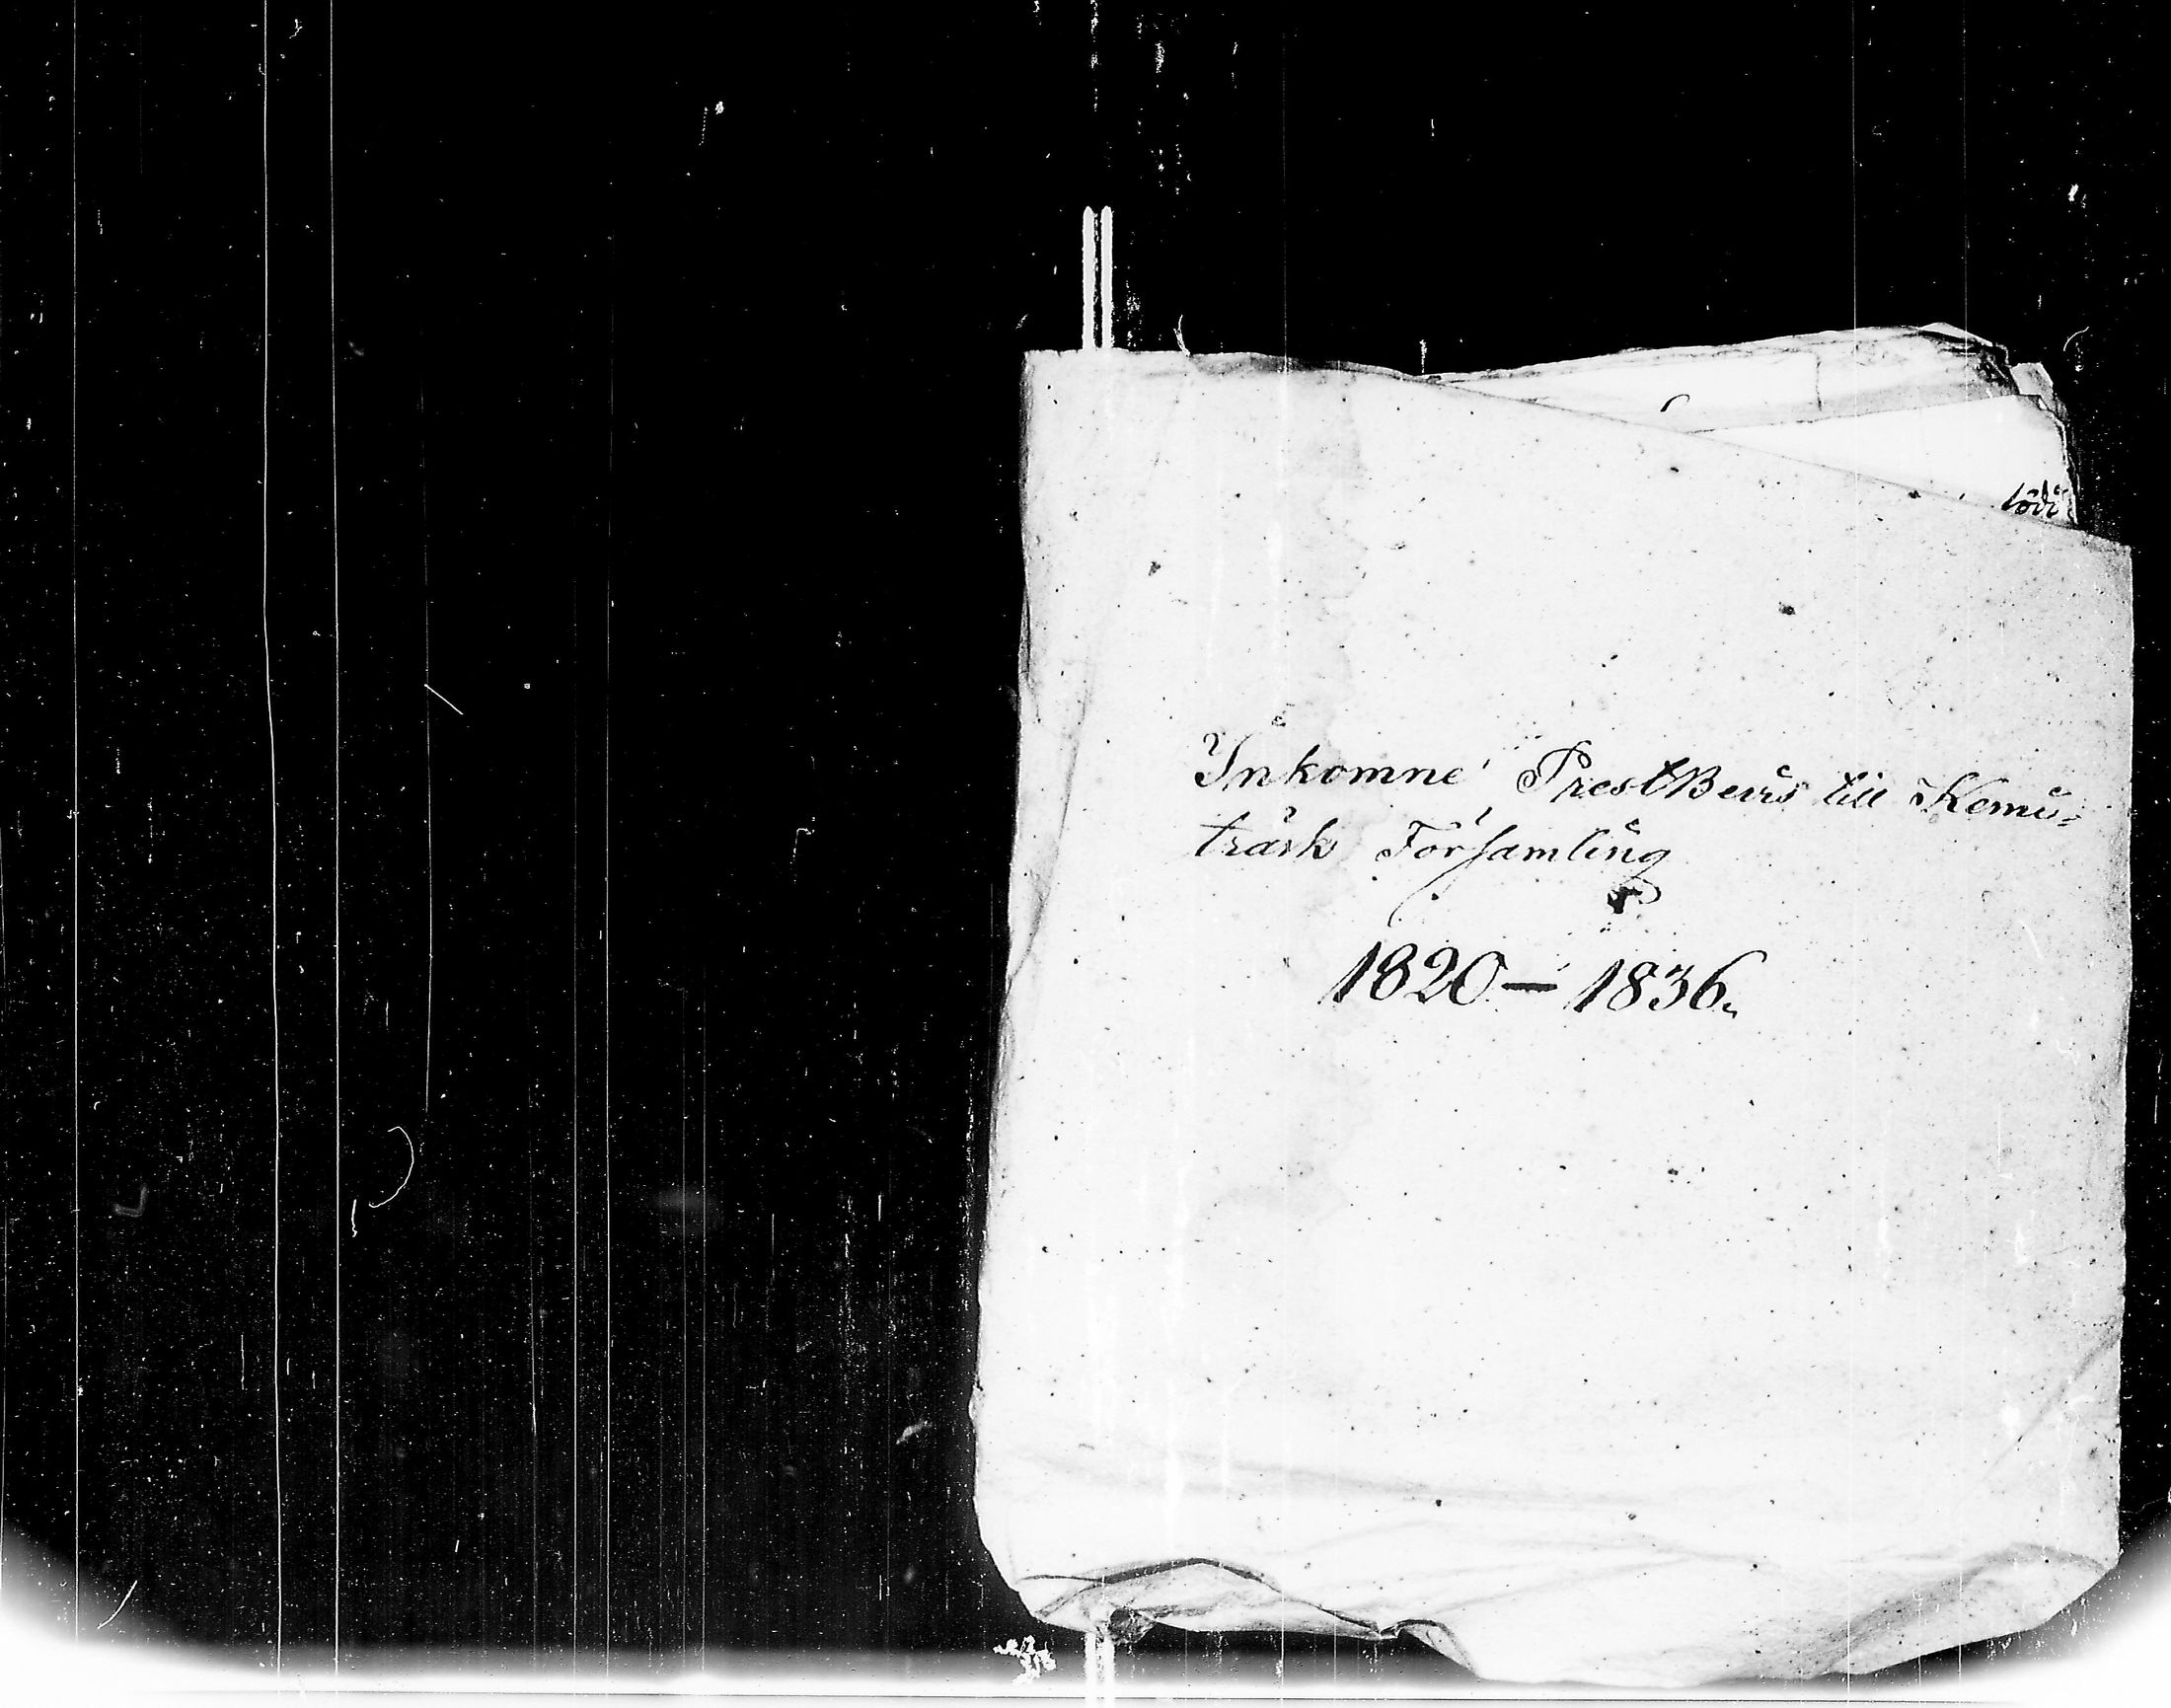 Inkomne PrestBevis till Kemi=
träsk Församling
1820 — 1836.